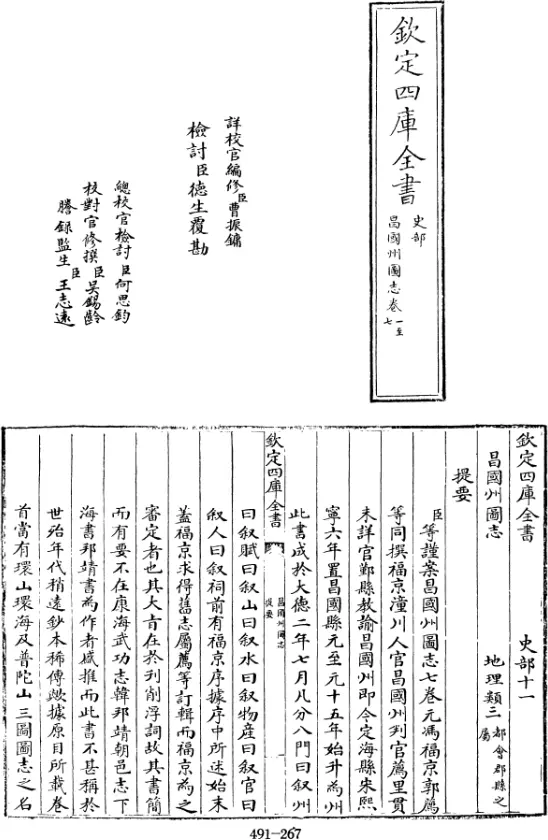 欽定四庫全書
史部
昌國州圖志卷一至七
詳校官編修臣曹振鏞
檢討臣德生覆勘
總校官檢討臣何思鈞
校對官修撰臣吳錫齡
謄録監生臣王志遠
欽定四庫全書
史部十一
昌國州圖志
地理類三都會郡縣之屬
提要
臣等謹案昌國州圖志七卷元馮福京郭薦
等同撰福京潼川人官昌國州判官薦里貫
未詳官鄞縣教諭昌國州即今定海縣宋熙
寧六年置昌國縣元至元十五年始升為州
此書成於大德二年七月凡分八門曰叙州
欽定四庫全書
昌國州圖志
提要
曰叙賦曰叙山曰叙水曰叙物産曰叙官曰
叙人曰叙祠前有福京序據序中所述始末
蓋福京求得舊志屬薦等訂輯而福京為之
審定者也其大旨在於刋削浮詞故其書簡
而有要不在康海武功志韓邦靖朝邑志下
海書邦靖書為作者盛推而此書不甚稱於
世殆年代稍遠鈔本稀傳歟據原目所載卷
首當有環山環海及普陀山三圖圖志之名
491-267